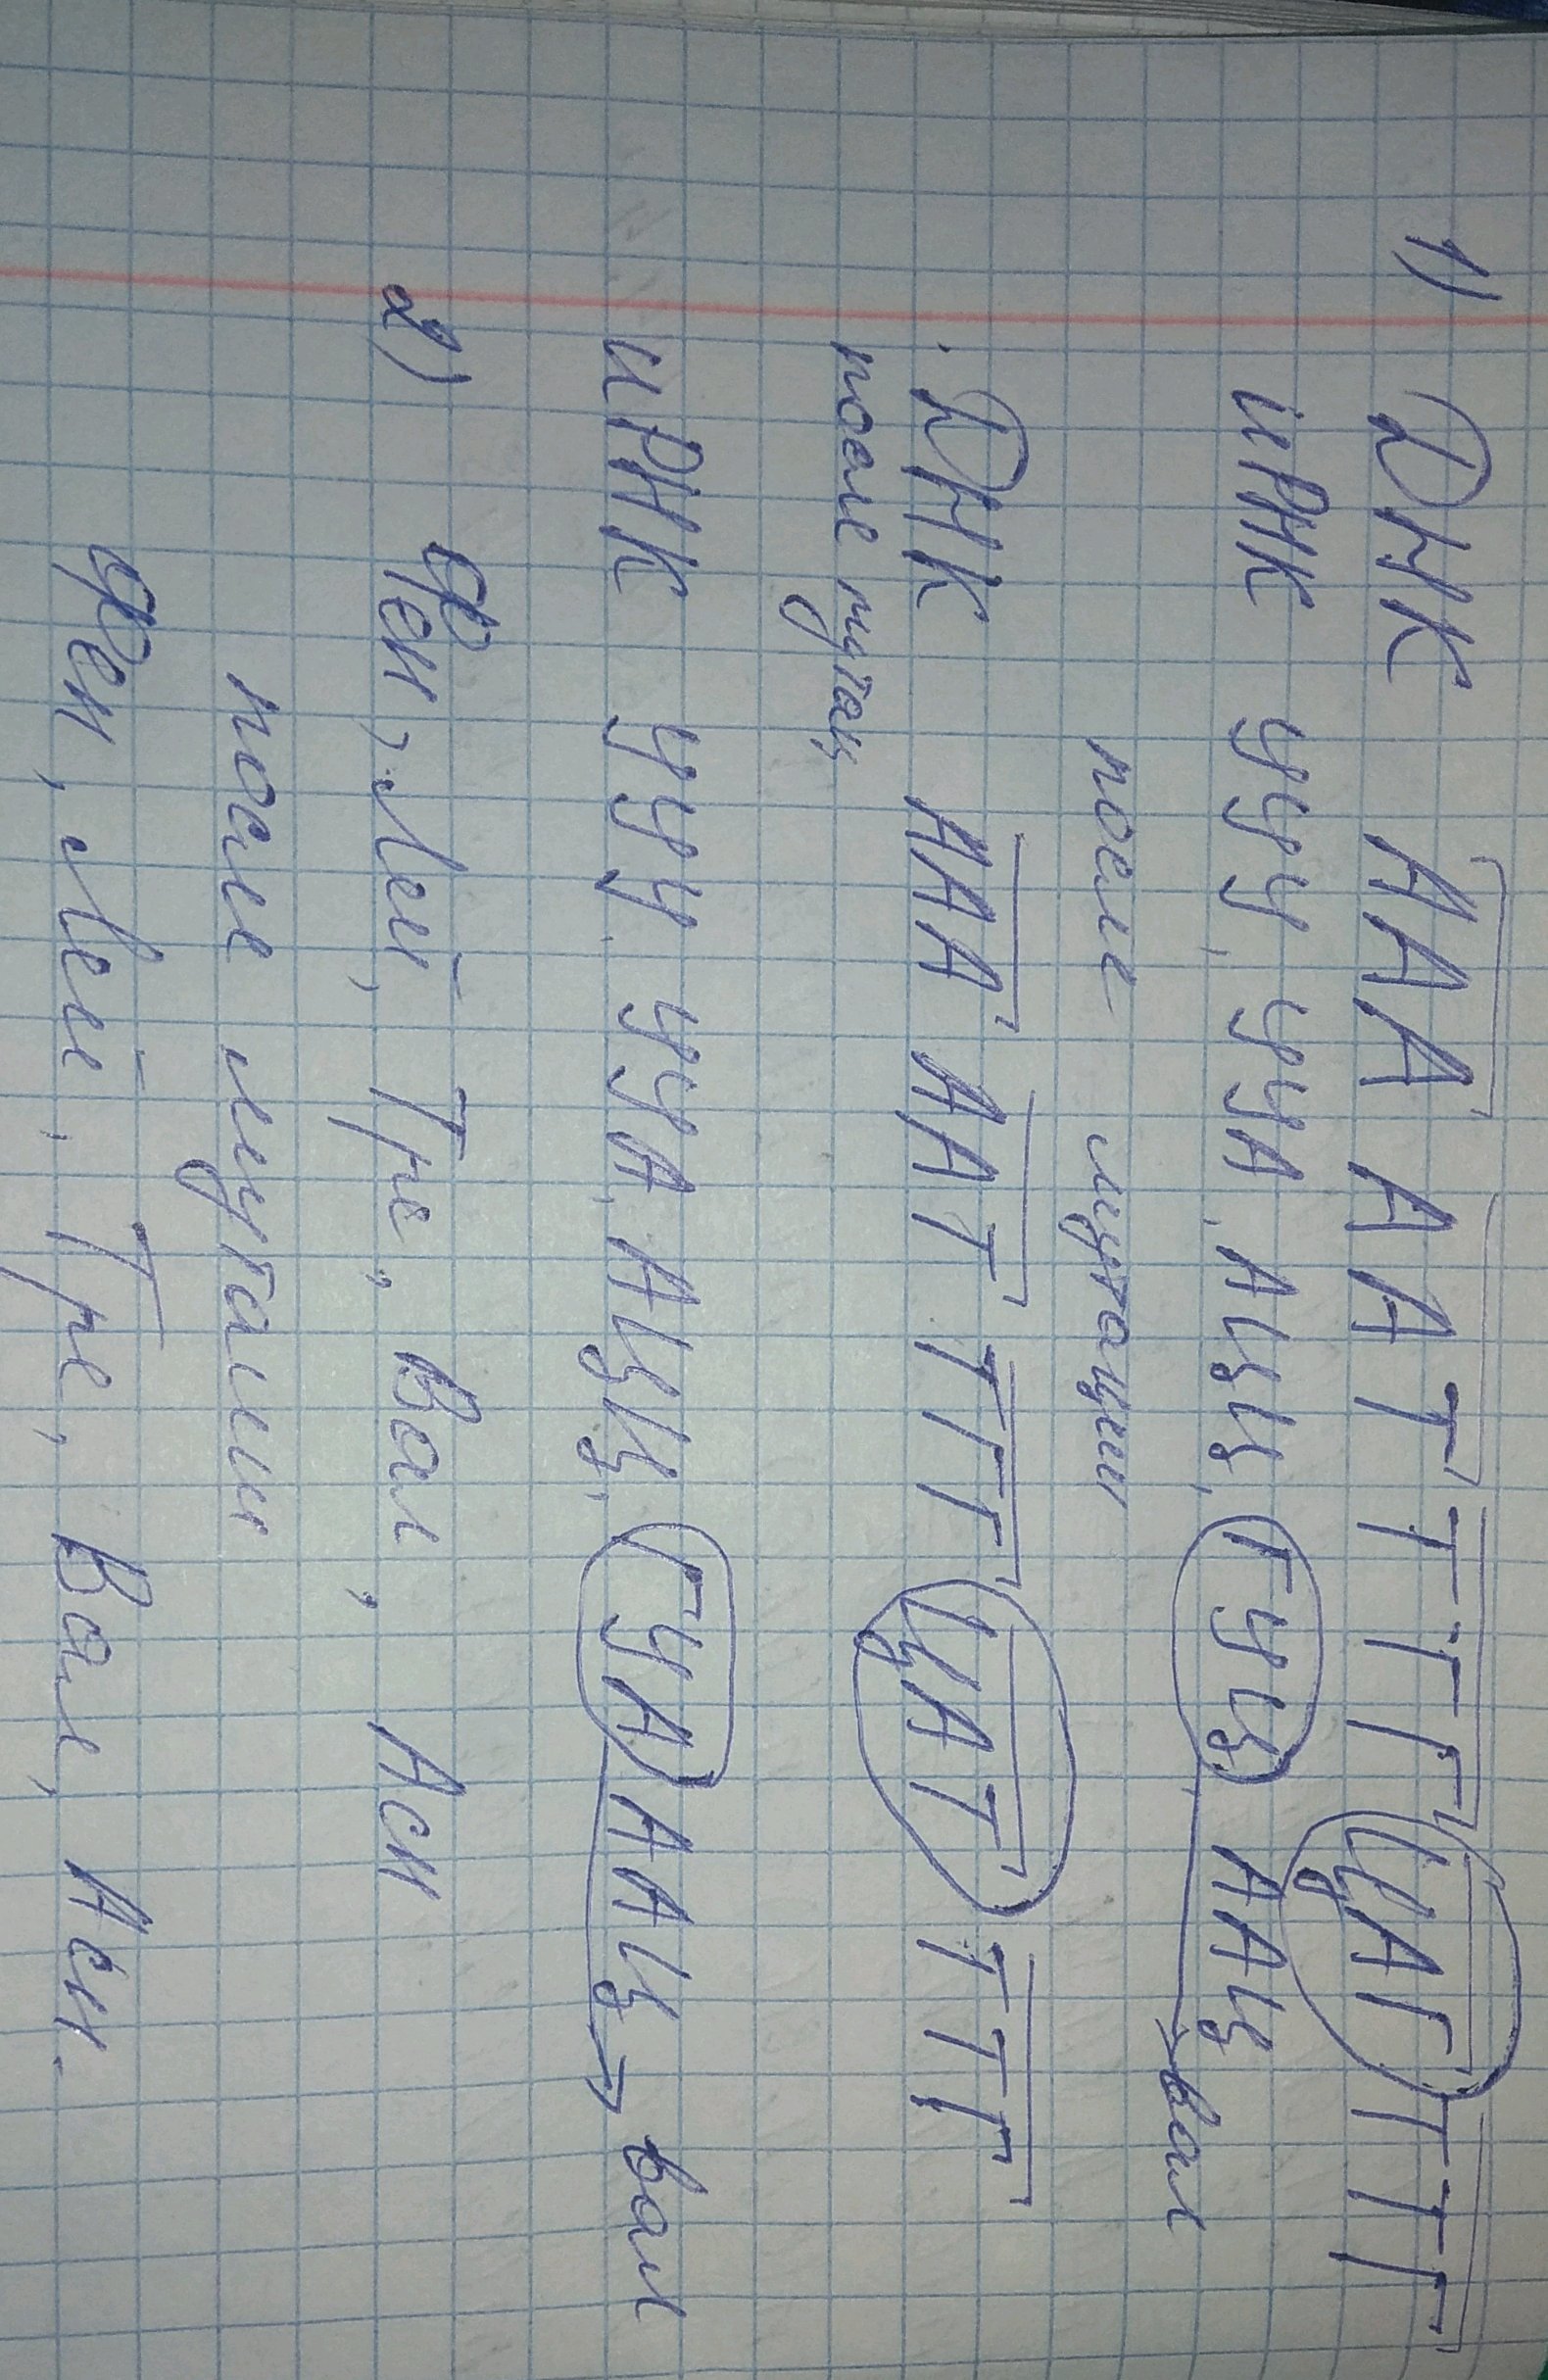 1) ДНК ААА ААТ ТГГ ЦАГ ТТГ
иРНК УУУ, УУА, АЦЦ, ГУЦ ААЦ → вал
после мутации
ДНК ААА ААТ ТГГ ЦАТ ТТГ
после мутац
иРНК УУУ, УУА, АЦЦ, ГУА ААЦ → вал
2) Фен, Лей, Тре, Вал, Асн
после мутации
Фен, Лей, Тре, Вал, Асн.